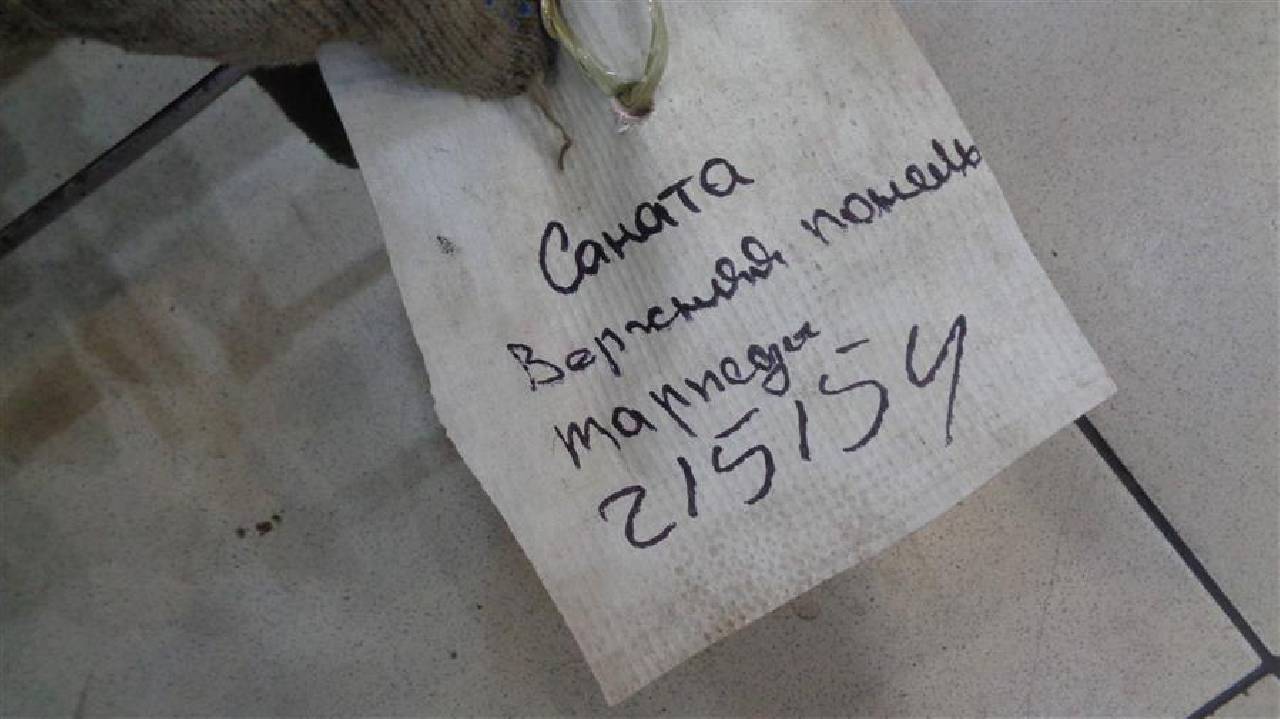 Саната
Верхняя понель
тарпеды
215154